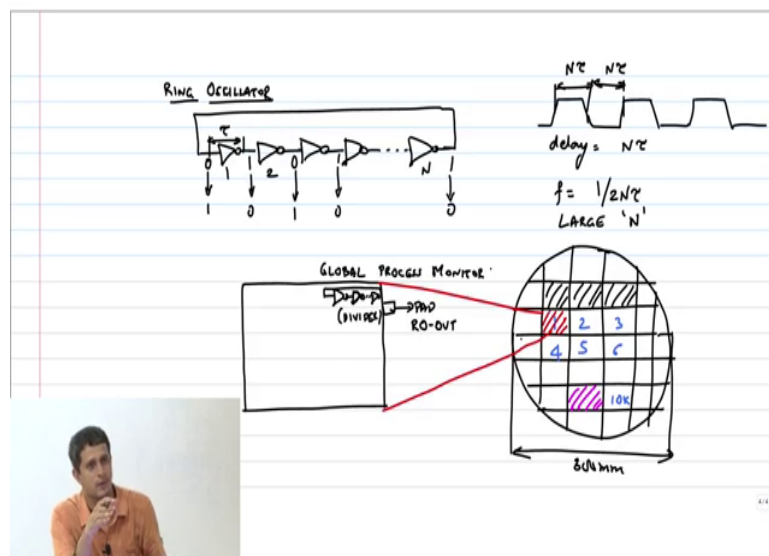 RING OSCILLATOR
τ
0 1 0 1 1
1 2 N
1 0 1 0 0
Nτ Nτ
delay = Nτ
f = 1/2Nτ
LARGE 'N'
GLOBAL PROCEN MONITOR
(DIVIDER)
PAD
RO-OUT
1 2 3
4 5 6
10K